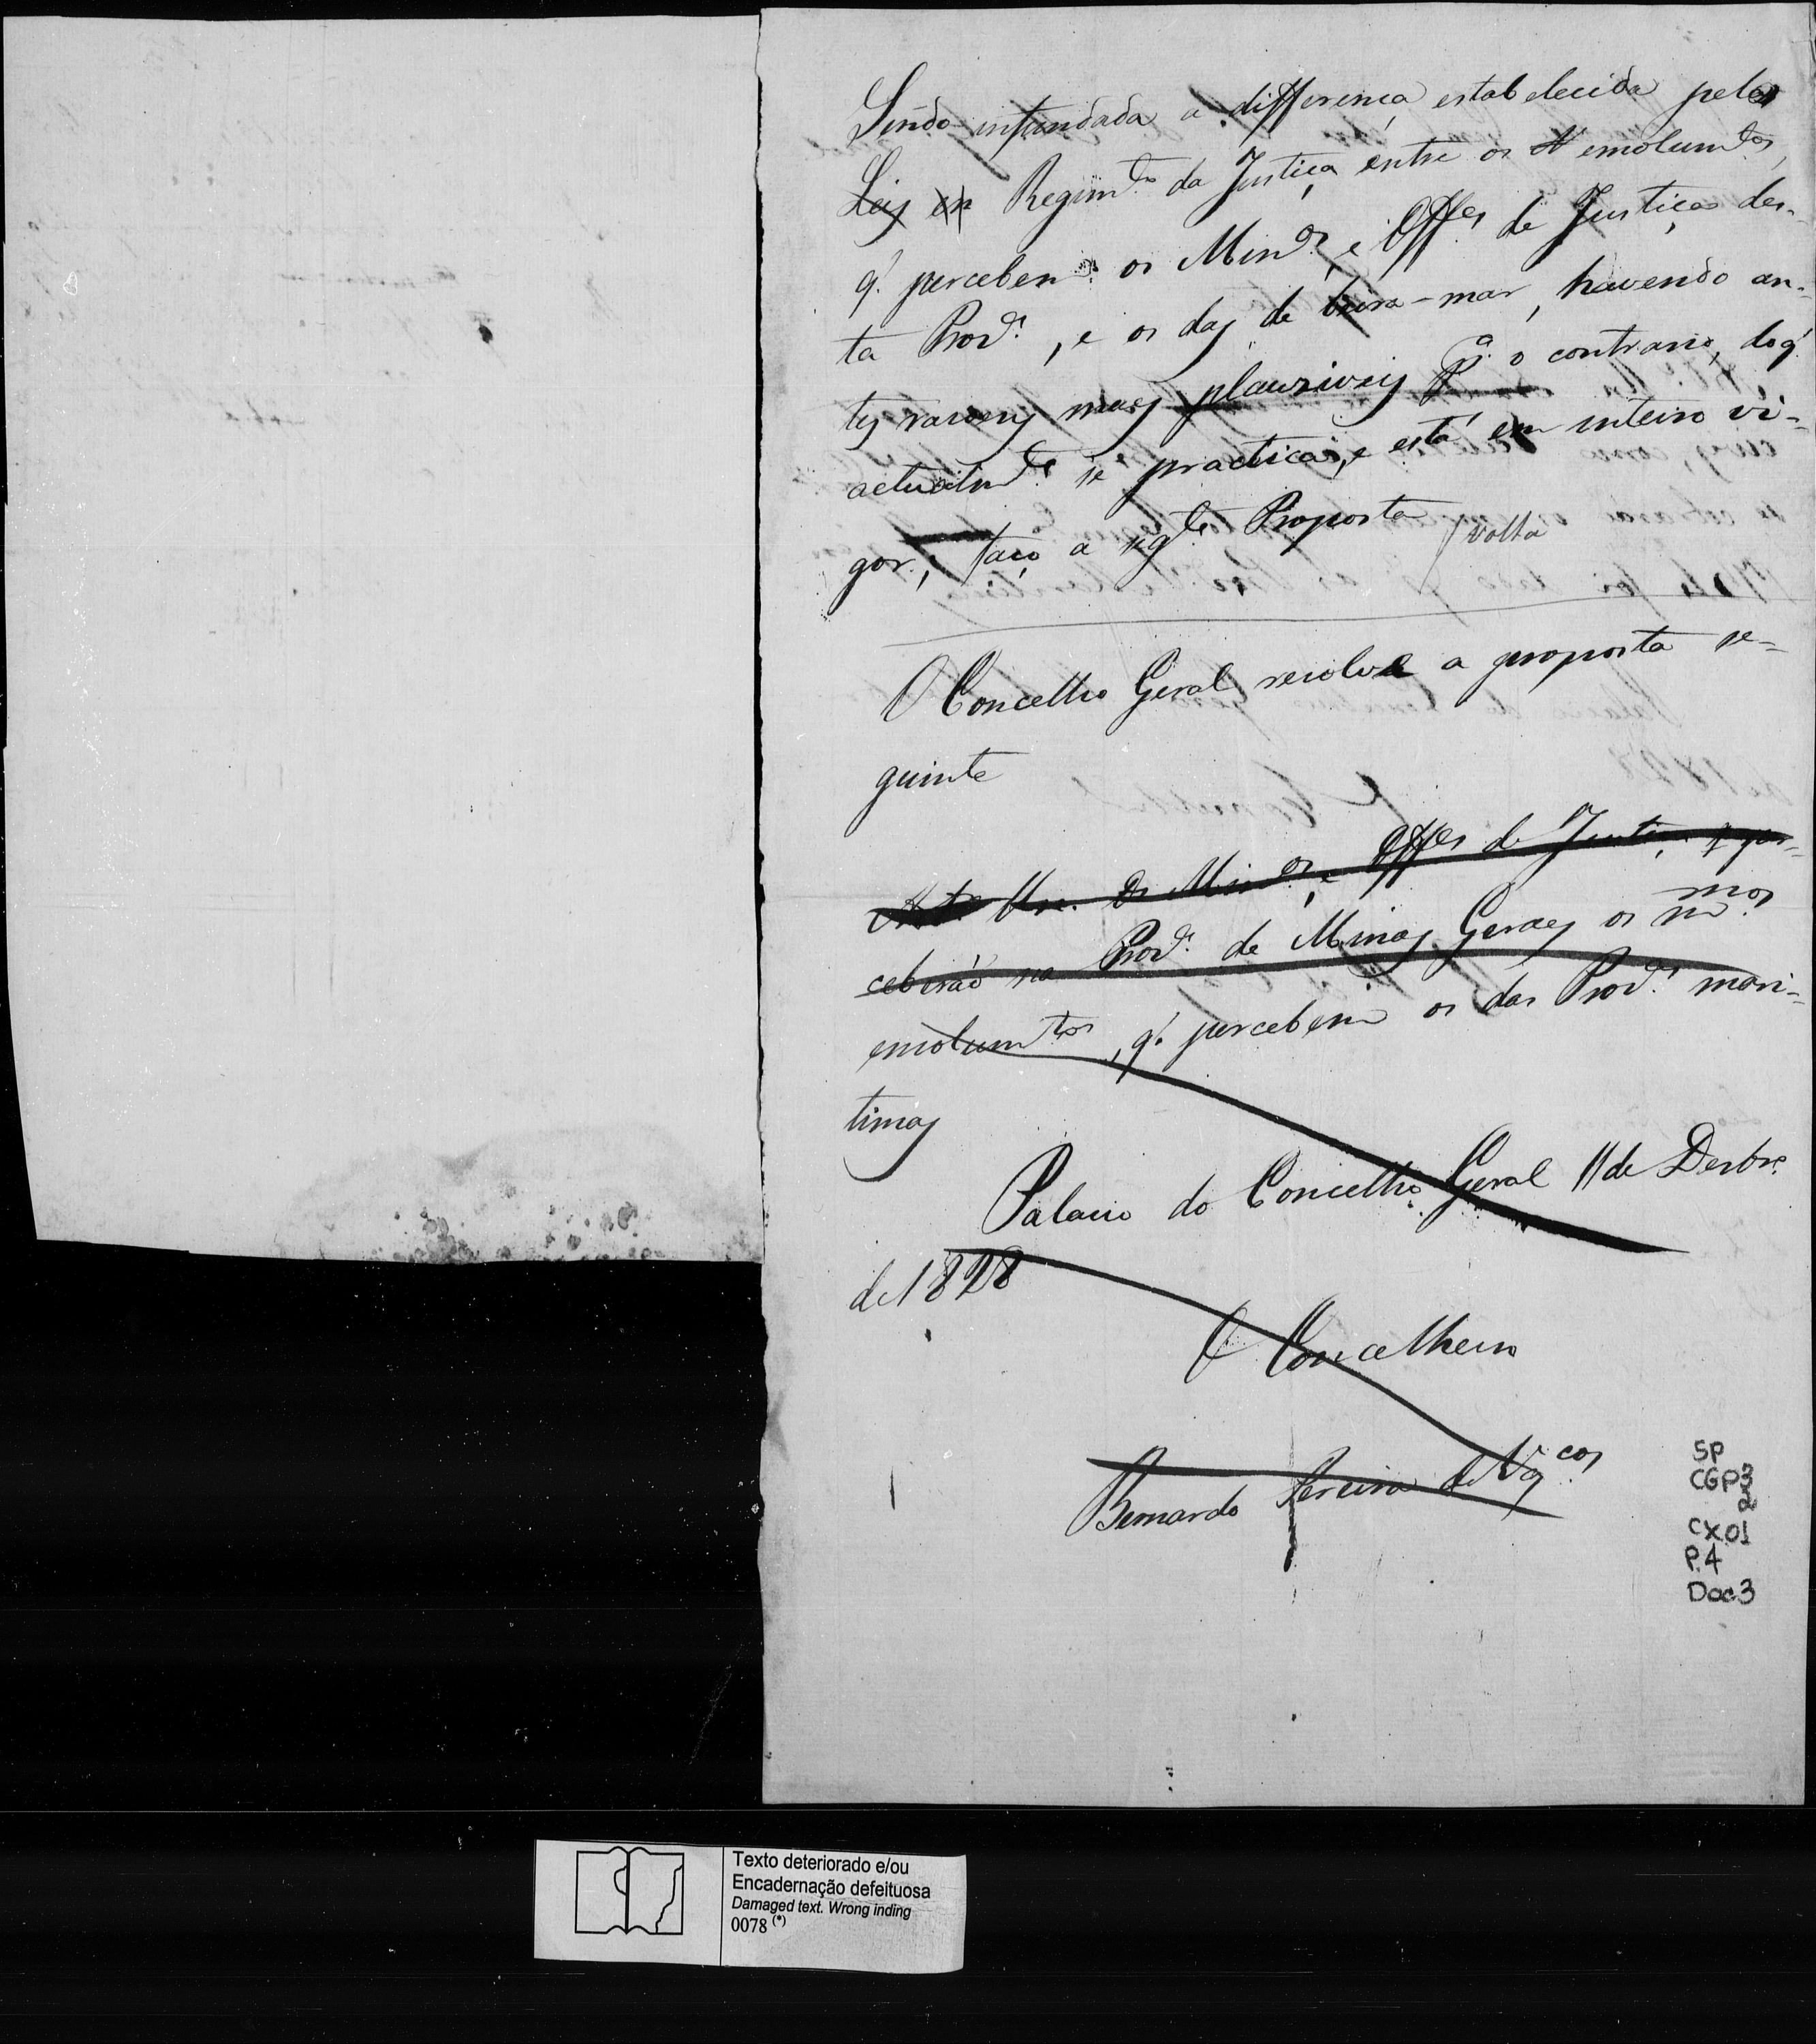 Sendo infundada a differença estabelecida pelos
Leis en Regimtos da Justiça entre os emolumtos,
q̃ percebem os Minos, e Offes de Justiça des-
ta Prova, e os das de beira-mar, havendo an-
tes rasoens mais plausiveis pa o contrario, do q̃
actualmte se practica, e está em inteiro vi-
gor, faço a segte Proposta
volta
O Concelho Geral resolve a proposta se-
guinte
Art. Un. Os Minos, e Offes de Justiça per-
ceberáõ na Prova de Minas Geraes os mmos
emolumtos, q̃ percebem os das Provas mari-
timas
Palacio do Concelho Geral 11 de Dezbro
de 1828
O Concelheiro
Bernardo Pereira de Vascos
SP
CGP3
2
CX.01
P.4
Doc3
Texto deteriorado e/ou
Encadernação defeituosa
Damaged text. Wrong inding
0078 (*)